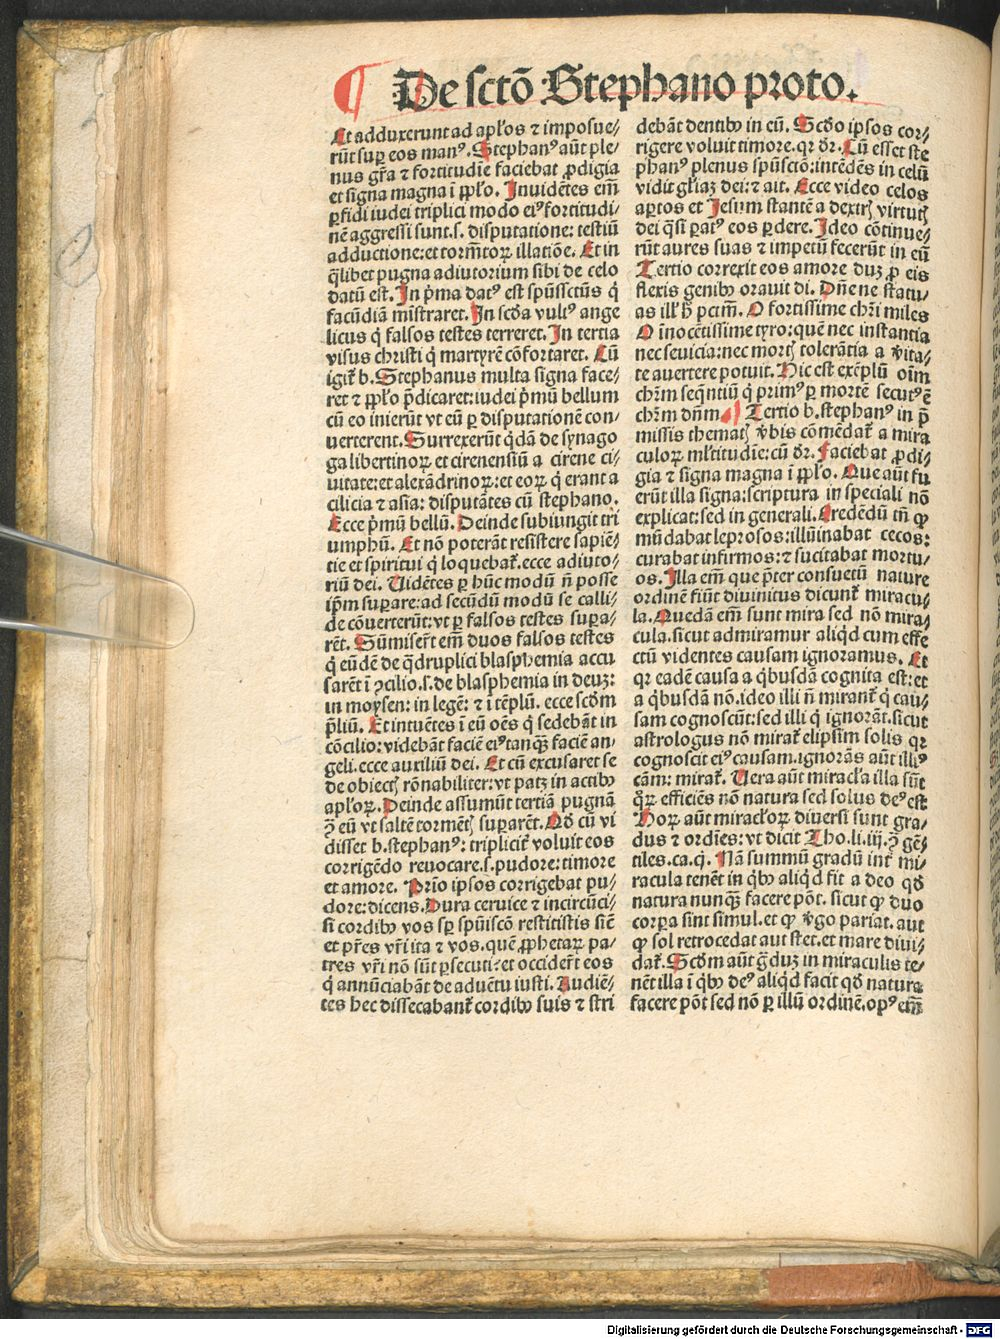 ¶ De sctō Stephano proto.
Et adduxerunt ad apl'os ⁊ imposue⸗
rūt suꝑ eos manꝰ. Stephanꝰ aūt ple⸗
nus gr̄a ⁊ fortitudīe faciebat ꝓdigia
et signa magna ī ppl'o. Inuidētes em̄
ꝑfidi iudei triplici modo eiꝰ fortitudi⸗
nē aggressi sunt .s. disputatione: testiū
adductione: et tormētoꝝ illatiōe. Et in
q̄libet pugna adiutorium sibi de celo
datū est. In p̄ma datꝰ est spūssctūs q̇
facūdiam mīstraret. In scd̄a vultꝰ ange
licus q̇ falsos testes terreret. In tertia
visus christi q̇ martyrē cōfortaret. Cū
igit̄ b. Stephanus multa signa face⸗
ret ⁊ ppl'o p̄dicaret: iudei p̄mū bellum
cū eo inierūt vt eū ꝑ disputationē con⸗
uerterent. Surrexerūt q̇dā de synago
ga libertinoꝝ et cirenensiū a cirene ci⸗
uitate: et alexādrinoꝝ: et eoꝝ q̇ erant a
cilicia ⁊ asia: disputātes cū stephano.
Ecce p̄mū bellū. Deinde subiungit tri
umphū. Et nō poterāt resistere sapiē⸗
tie et spiritui q̇ loquebat̄. ecce adiuto⸗
riū dei. Uidētes ꝑ hūc modū n̄ posse
ip̄m suꝑare: ad secūdū modū se calli⸗
de cōuerterūt: vt ꝑ falsos testes suꝑa⸗
rēt. Sūmiser̄t em̄ duos falsos testes
q̇ eūdē de q̄druplici blasphemia accu
sarēt ī ↄcilio .s. de blasphemia in deuꝫ:
in moysen: in legē: ⁊ ī tēplū. ecce scd̄m
p̄liū. Et intuētes ī eū oēs q̇ sedebāt in
cōcilio: videbāt faciē eiꝰ tanq̄ꝫ faciē an⸗
geli. ecce auxiliū dei. Et cū excusaret se
de obiectꝭ rōnabiliter: vt patꝫ in actibꝰ
apl'oꝝ. Deinde assumūt tertiā pugnā
ↄ̄ eū vt saltē tormētꝭ suꝑarēt. Qd̄ cū vi
disset b. stephanꝰ: triplicit̄ voluit eos
corrigēdo reuocare .s. pudore: timore
et amore. Prīo ipsos corrigebat pu⸗
dore: dicens. Dura ceruice ⁊ incircūci⸗
si cordibꝰ vos sꝑ spūiscō restitistis siē
et pr̄es vr̄i ita ⁊ vos. quē ꝓphetaꝝ pa⸗
tres vr̄i nō sūt ꝑsecuti: et occider̄t eos
q̇ annūciabāt de aduētu iusti. Audiē⸗
tes hec dissecabant̄ cordibꝰ suis ⁊ stri
debāt dentibꝰ in eū. Scd̄o ipsos cor⸗
rigere voluit timore. qr d̄r. Cū esset ste
phanꝰ plenus spūsctō: intēdēs in celū
vidit gl'iaꝫ dei: ⁊ ait. Ecce video celos
aꝑtos et Jesum stantē a dextrꝭ virtutꝭ
dei q̄si ꝑatꝰ eos ꝑdere. Ideo cōtinue⸗
rūt aures suas ⁊ impetū fecerūt in eū
Tertio correxit eos amore duꝫ ꝓ eis
flexis genibꝰ orauit di. Dn̄e ne statu⸗
as ill' h̄ pctm̄. O fortissime chr̄i miles
O īnocētissime tyro: quē nec instantia
nec seuicia: nec mortꝭ tolerātia a v̄ita⸗
te auertere potuit. Hic est exēplū oīm
chr̄m seq̄ntiū q̇ primꝰ ꝑ mortē secutꝰ ē
chr̄m dn̄m. ¶ Tertio b. stephanꝰ in p̄
missis thematꝭ v̄bis cōmēdat̄ a mira
culoꝝ ml'titudīe: cū d̄r. Faciebat ꝓdi⸗
gia ⁊ signa magna ī ppl'o. Que aūt fu
erūt illa signa: scriptura in speciali nō
explicat: sed in generali. Credēdū tn̄ ꝙ
mūdabat leprosos: illūinabat cecos:
curabat infirmos: ⁊ sucitabat mortu⸗
os. Illa em̄ que p̄ter consuetū nature
ordinē fiūt diuinitus dicunt̄ miracu⸗
la. Quedā em̄ sunt mira sed nō mira⸗
cula. sicut admiramur aliqd̄ cum effe
ctū videntes causam ignoramus. Et
qr eadē causa a q̇busdā cognita est: et
a q̇busdā nō. ideo illi n̄ mirant̄ q̇ cau⸗
sam cognoscūt: sed illi q̇ ignorāt. sicut
astrologus nō mirat̄ elipsim solis qr
cognoscit eiꝰ causam. ignorās aūt illiꝰ
cām: mirat̄. Uera aūt miracl'a illa sūt
q̄ꝝ efficiēs nō natura sed solus deꝰ est
Hoꝝ aūt miracl'oꝝ diuersi sunt gra⸗
dus ⁊ ordīes: vt dicit Tho. li. iij. ↄ̄ gē⸗
tiles. ca. ci. Nā summū gradū int̄ mi⸗
racula tenēt in q̇bꝰ aliqd̄ fit a deo qd̄
natura nunq̄ꝫ facere pōt. sicut ꝙ duo
corꝑa sint simul. et ꝙ v̄go pariat. aut
ꝙ sol retrocedat aut stet. et mare diui⸗
dat̄. Scd̄m aūt g̊duꝫ in miraculis te⸗
nēt illa ī q̇bꝰ deꝰ aliqd̄ facit qd̄ natura
facere pōt sed nō ꝑ illū ordinē. opꝰ em̄
Digitalisierung gefördert durch die Deutsche Forschungsgemeinschaft - DFG